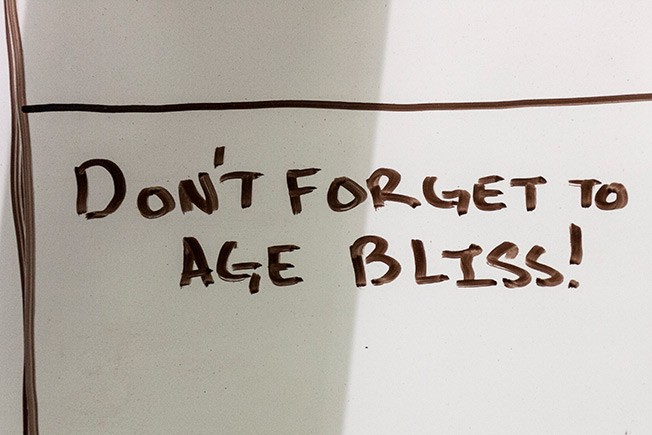 DON'T FORGET TO
AGE BLISS!